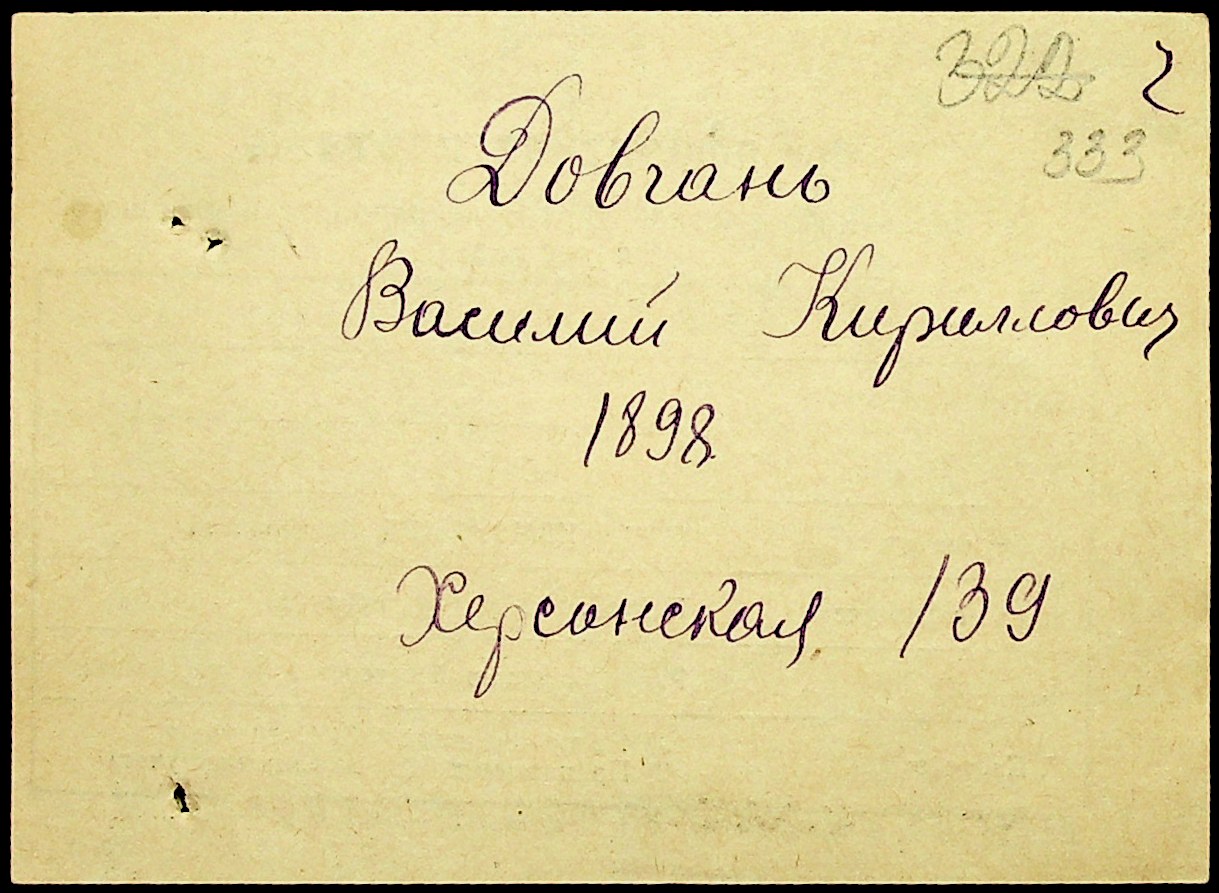 322 2
333
Довгань
Василий Кириллович
1898
Херсонская 139